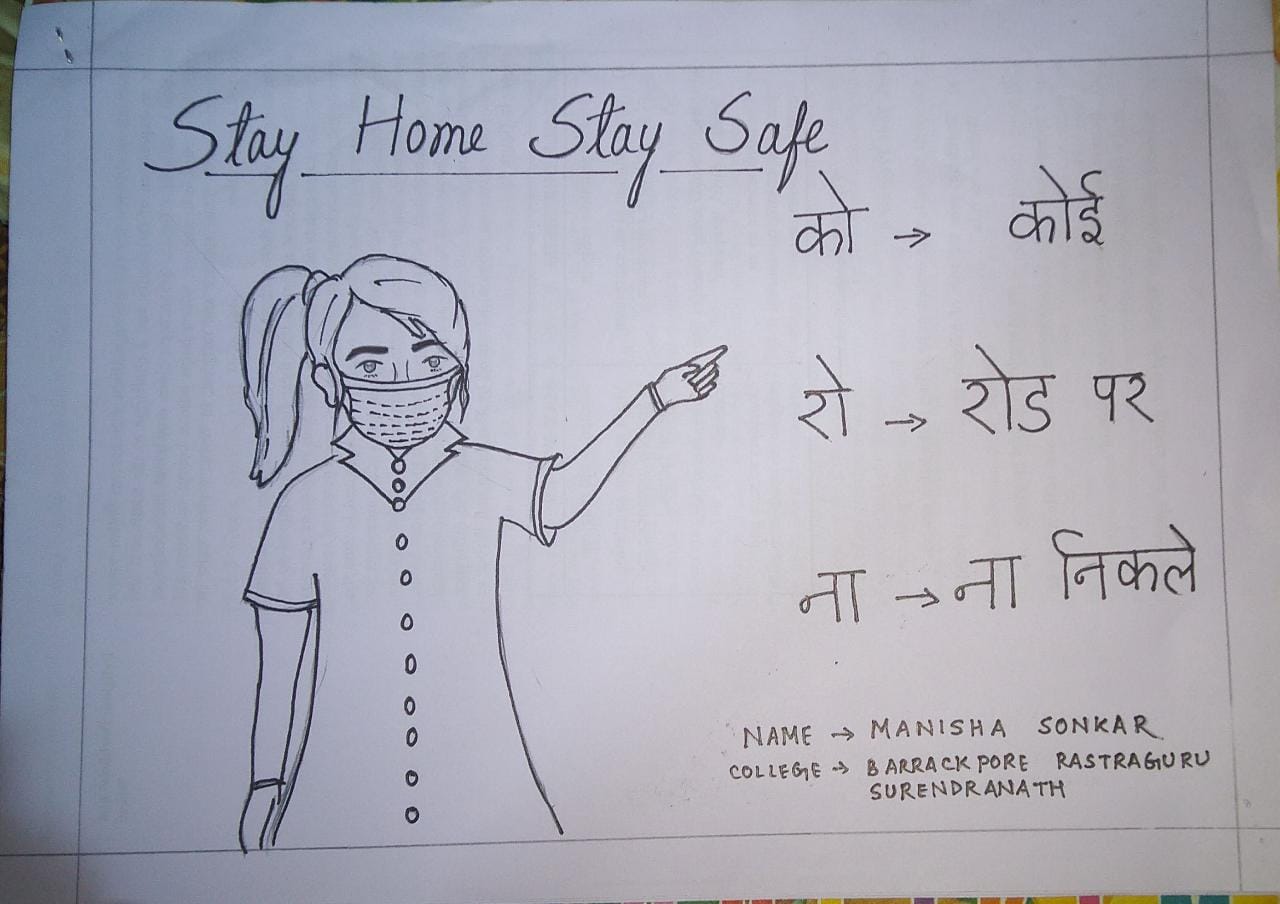 Stay Home Stay Safe
को → कोई
रो → रोड पर
ना → ना निकले
NAME → MANISHA SONKAR
COLLEGE → BARRACKPORE RASTRAGURU
SURENDRANATH